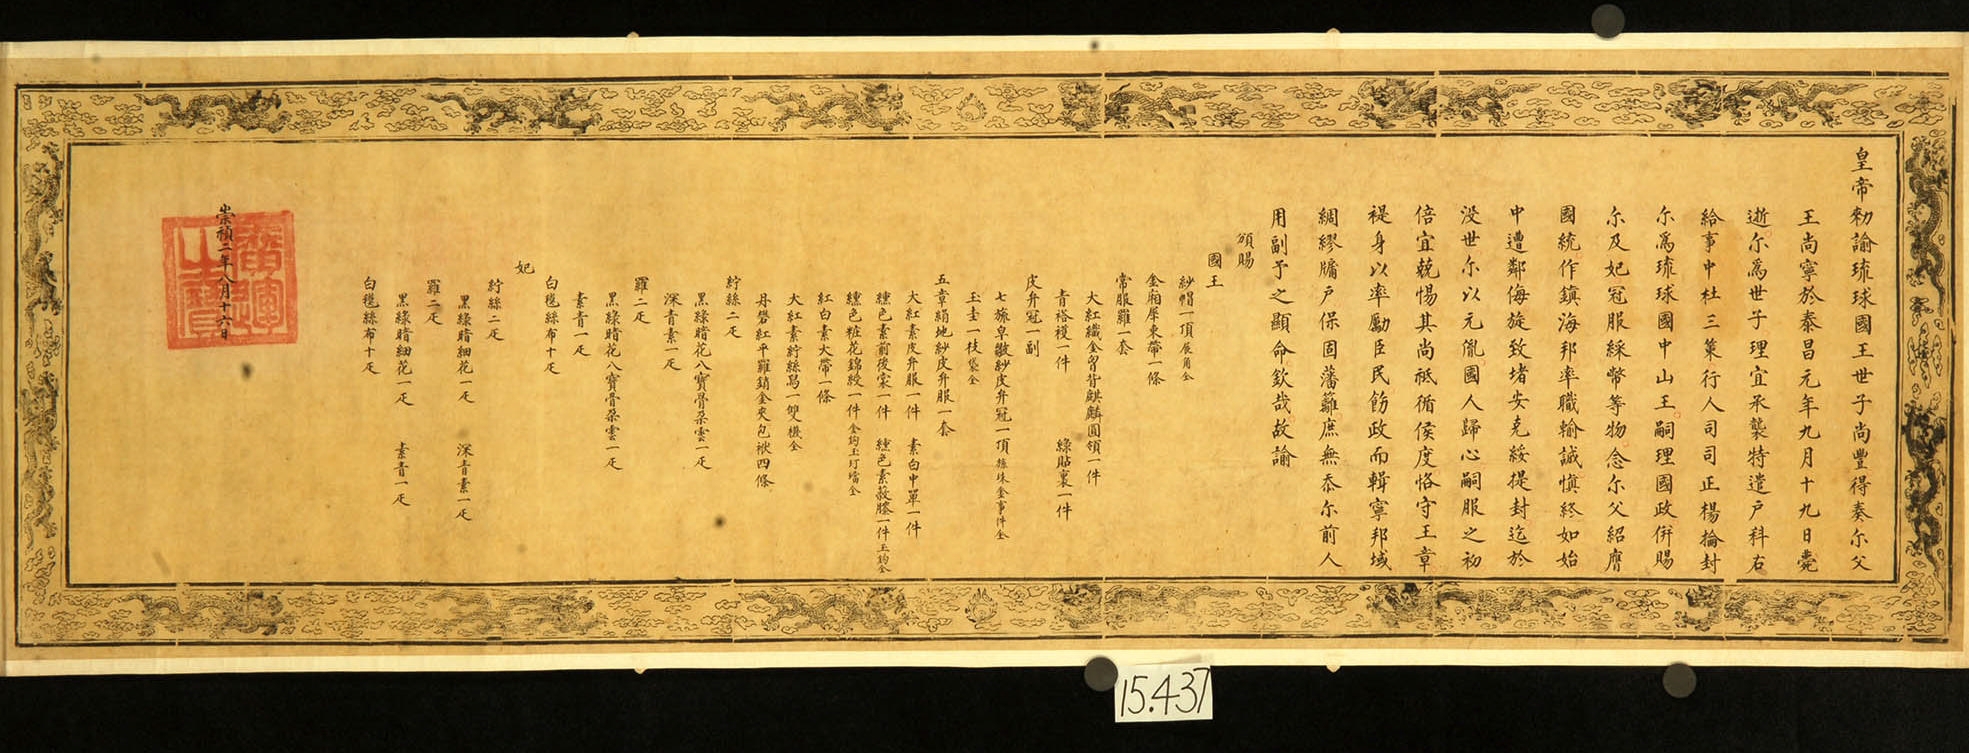 皇帝勑諭琉球國王世子尚豐得奏尔父
王尚寧於泰昌元年九月十九日薨
逝尔爲世子理宜承襲特遣户科右
給事中杜三策行人司司正楊掄封
尔爲琉球國中山王嗣理國政併賜
尔及妃冠服綵幣等物念尔父紹膺
國統作鎮海邦率職輸誠慎終如始
中遭鄰侮旋致堵安克綏提封迄於
没世尔以元胤國人歸心嗣服之初
倍宜兢惕其尚祗循侯度恪守王章
禔身以率勵臣民飭政而輯寧邦域
綢繆牖户保固藩籬庶無忝尔前人
用副予之顯命欽哉故諭
頒賜
國王
紗帽一頂展角全
金廂犀束帶一條
常服羅一套
大紅織金胷背麒麟圓領一件
青褡𧞤一件 綠貼裏一件
皮弁冠一副
七旒皁皺紗皮弁冠一頂旒珠金事件全
玉圭一枝袋全
五章絹地紗皮弁服一套
大紅素皮弁服一件 素白中單一件
纁色素前後裳一件 纁色素蔽膝一件玉鈎全
纁色粧花錦綬一件金鈎玉玎璫全
紅白素大帶一條
大紅素紵絲舄一雙襪全
丹礬紅平羅銷金夾包袱四條
紵絲二疋
黑綠暗花八寶骨朶雲一疋
深青素一疋
羅二疋
黑綠暗花八寶骨朶雲一疋
素青一疋
白氁絲布十疋
妃
紵絲二疋
黑綠暗細花一疋 深青素一疋
羅二疋
黑綠暗細花一疋 素青一疋
白氁絲布十疋
崇禎二年八月十六日
廣運之寶
15.437